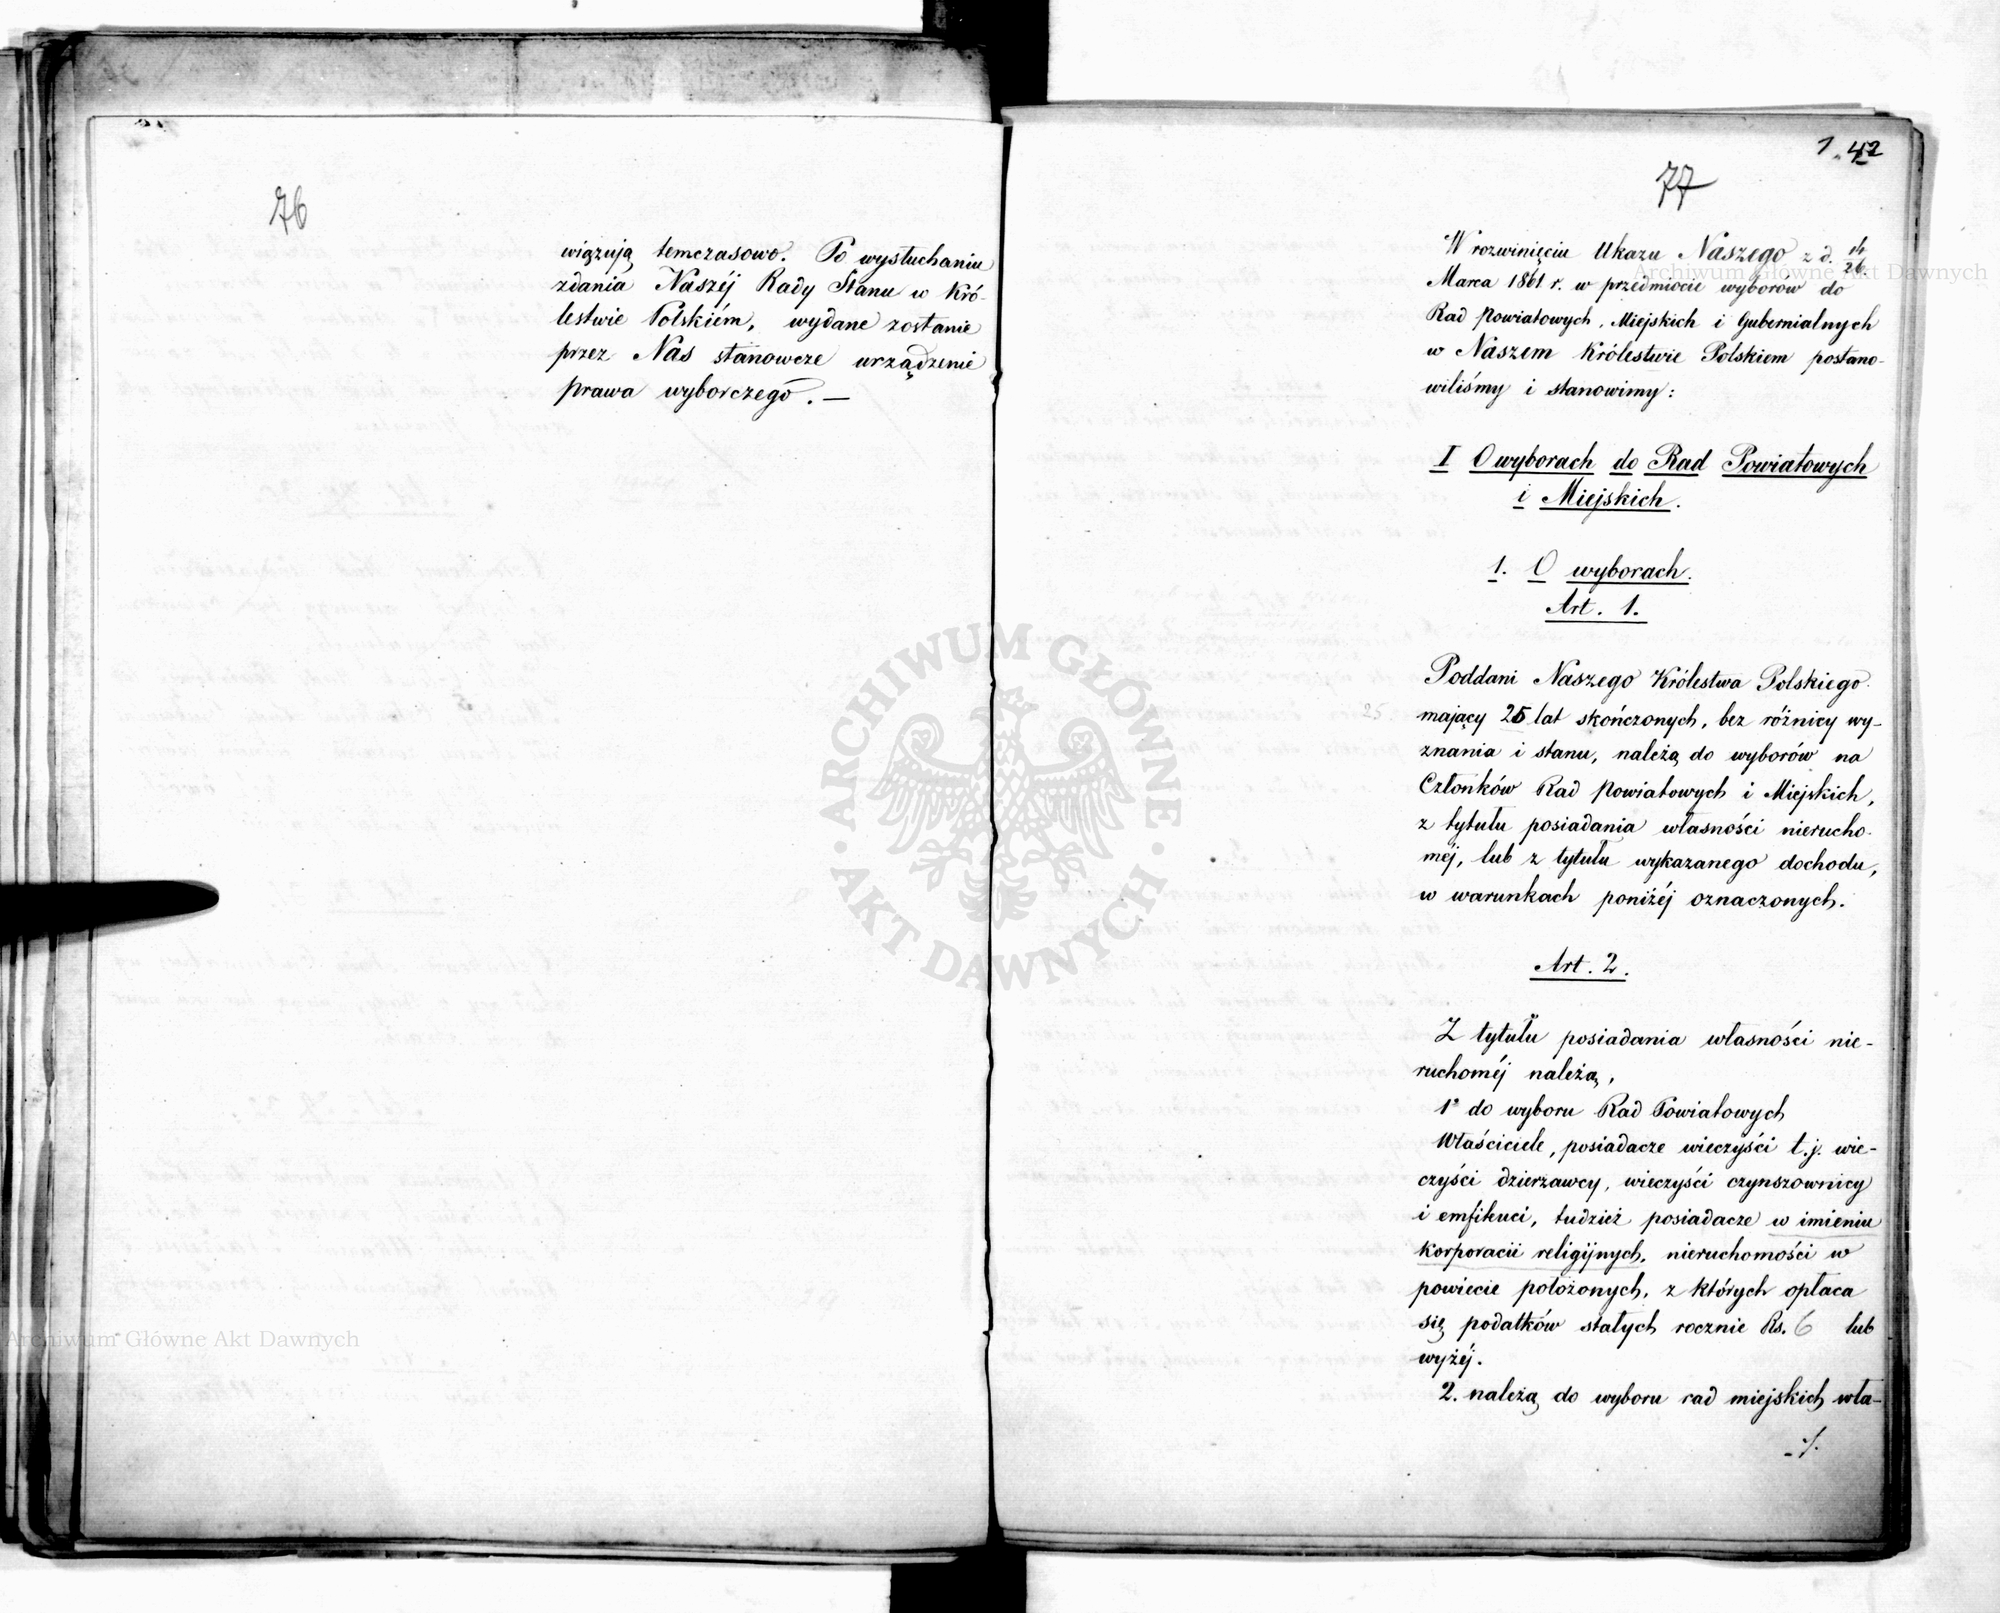 76
wiązują temczasowo. Po wysłuchaniu
zdania Naszéj Rady Stanu w Kró-
lestwie Polskiém, wydane zostanie
przez Nas stanowcze urządzenie
prawa wyborczego. —
1. 42
77
W rozwinięciu Ukazu Naszego z d. 14/26.
Marca 1861 r. w przedmiocie wyborów do
Rad Powiatowych, Miejskich i Gubernialnych
w Naszem Królestwie Polskiem postano-
wiliśmy i stanowimy:
I O wyborach do Rad Powiatowych
i Miejskich.
1. O wyborach.
Art. 1.
Poddani Naszego Królestwa Polskiego
25 mający 25 lat skończonych, bez różnicy wy-
znania i stanu, należą do wyborów na
Członków Rad Powiatowych i Miejskich,
z tytułu posiadania własności nierucho-
méj, lub z tytułu wykazanego dochodu,
w warunkach poniżéj oznaczonych.
Art. 2.
Z tytułu posiadania własności nie-
ruchoméj należą,
1° do wyboru Rad Powiatowych
Właściciele, posiadacze wieczyści t.j. wie-
czyści dzierzawcy, wieczyści czynszownicy
i emfiteuci, tudzież posiadacze w imieniu
korporacii religijnych, nieruchomości w
powiecie położonych, z których opłaca
się podatków stałych rocznie Rs. 6 lub
wyżéj.
2. należą do wyboru rad miejskich wła-
-/.
ARCHIWUM GŁÓWNE
AKT DAWNYCH
Archiwum Główne Akt Dawnych
Archiwum Główne Akt Dawnych